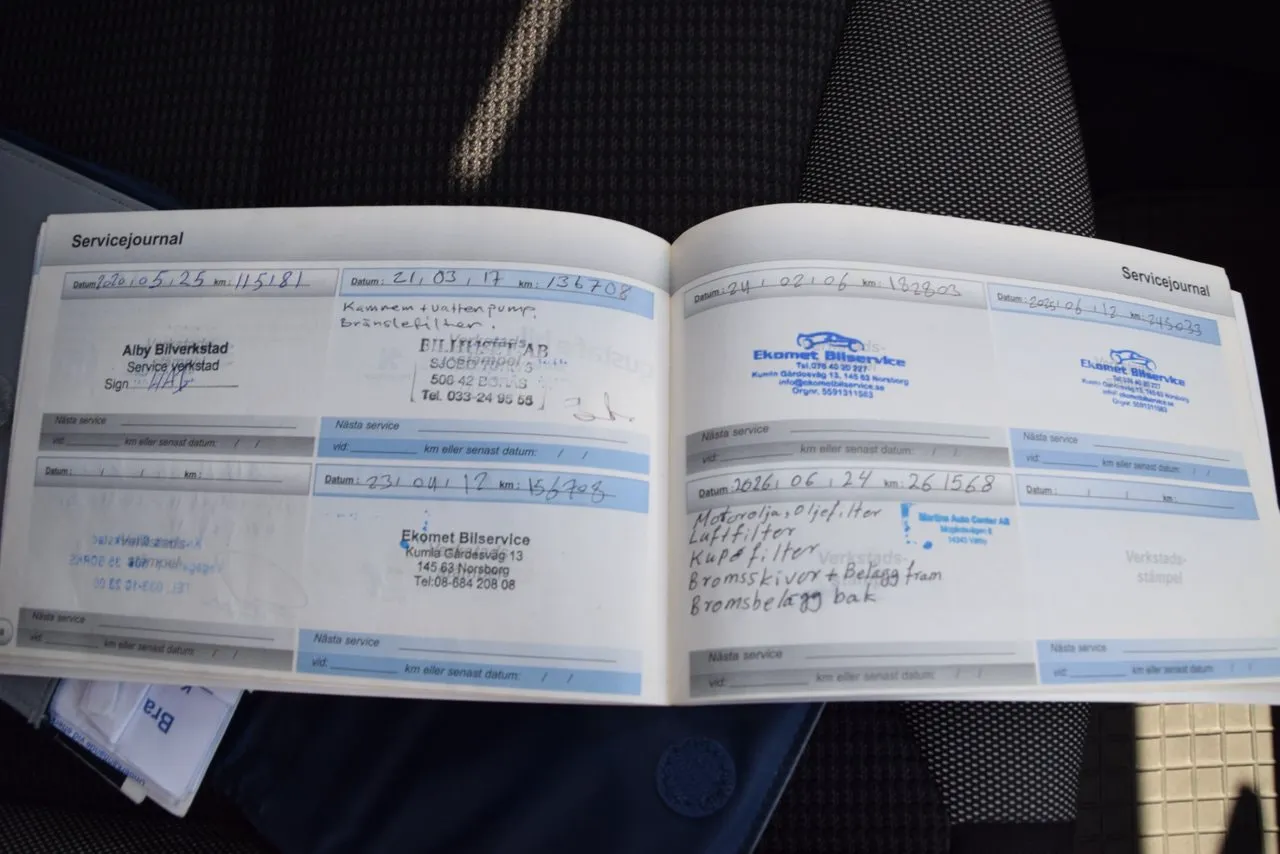 Servicejournal
Datum: 2020 / 05 / 25 km: 115181
Alby Bilverkstad
Service verkstad
Sign
Nästa service
vid: km eller senast datum: / /
Datum: 21 / 03 / 17 km: 136708
Kamrem + vattenpump.
Bränslefilter.
AB
500 42 BORÅS
Tel. 033-24 95 55
Nästa service
vid: km eller senast datum: / /
Datum: / / km:
Nästa service
vid: km eller senast datum: / /
Datum: 23 / 04 / 12 km: 156708
Ekomet Bilservice
Kumla Gårdesväg 13
145 63 Norsborg
Tel:08-684 208 08
Nästa service
vid: km eller senast datum: / /
Servicejournal
Datum: 24 / 02 / 06 km: 182803
Ekomet Bilservice
Tel.076 40 20 227
Kumla Gårdesväg 13, 145 63 Norsborg
info@ekometbilservice.se
Orgnr. 5591311563
Nästa service
vid: km eller senast datum: / /
Datum: 2025 / 06 / 12 km: 245033
Ekomet Bilservice
Tel.076 40 20 227
Kumla Gårdesväg 13, 145 63 Norsborg
info@ekometbilservice.se
Orgnr. 5591311563
Nästa service
vid: km eller senast datum: / /
Datum: 2026 / 06 / 24 km: 261568
Motorolja, Oljefilter
Luftfilter
Kupéfilter
Bromsskivor + Belägg fram
Bromsbelägg bak
Auto Center AB
Nästa service
vid: km eller senast datum: / /
Datum: / / km:
Verkstads-
stämpel
Nästa service
vid: km eller senast datum: / /
Bra